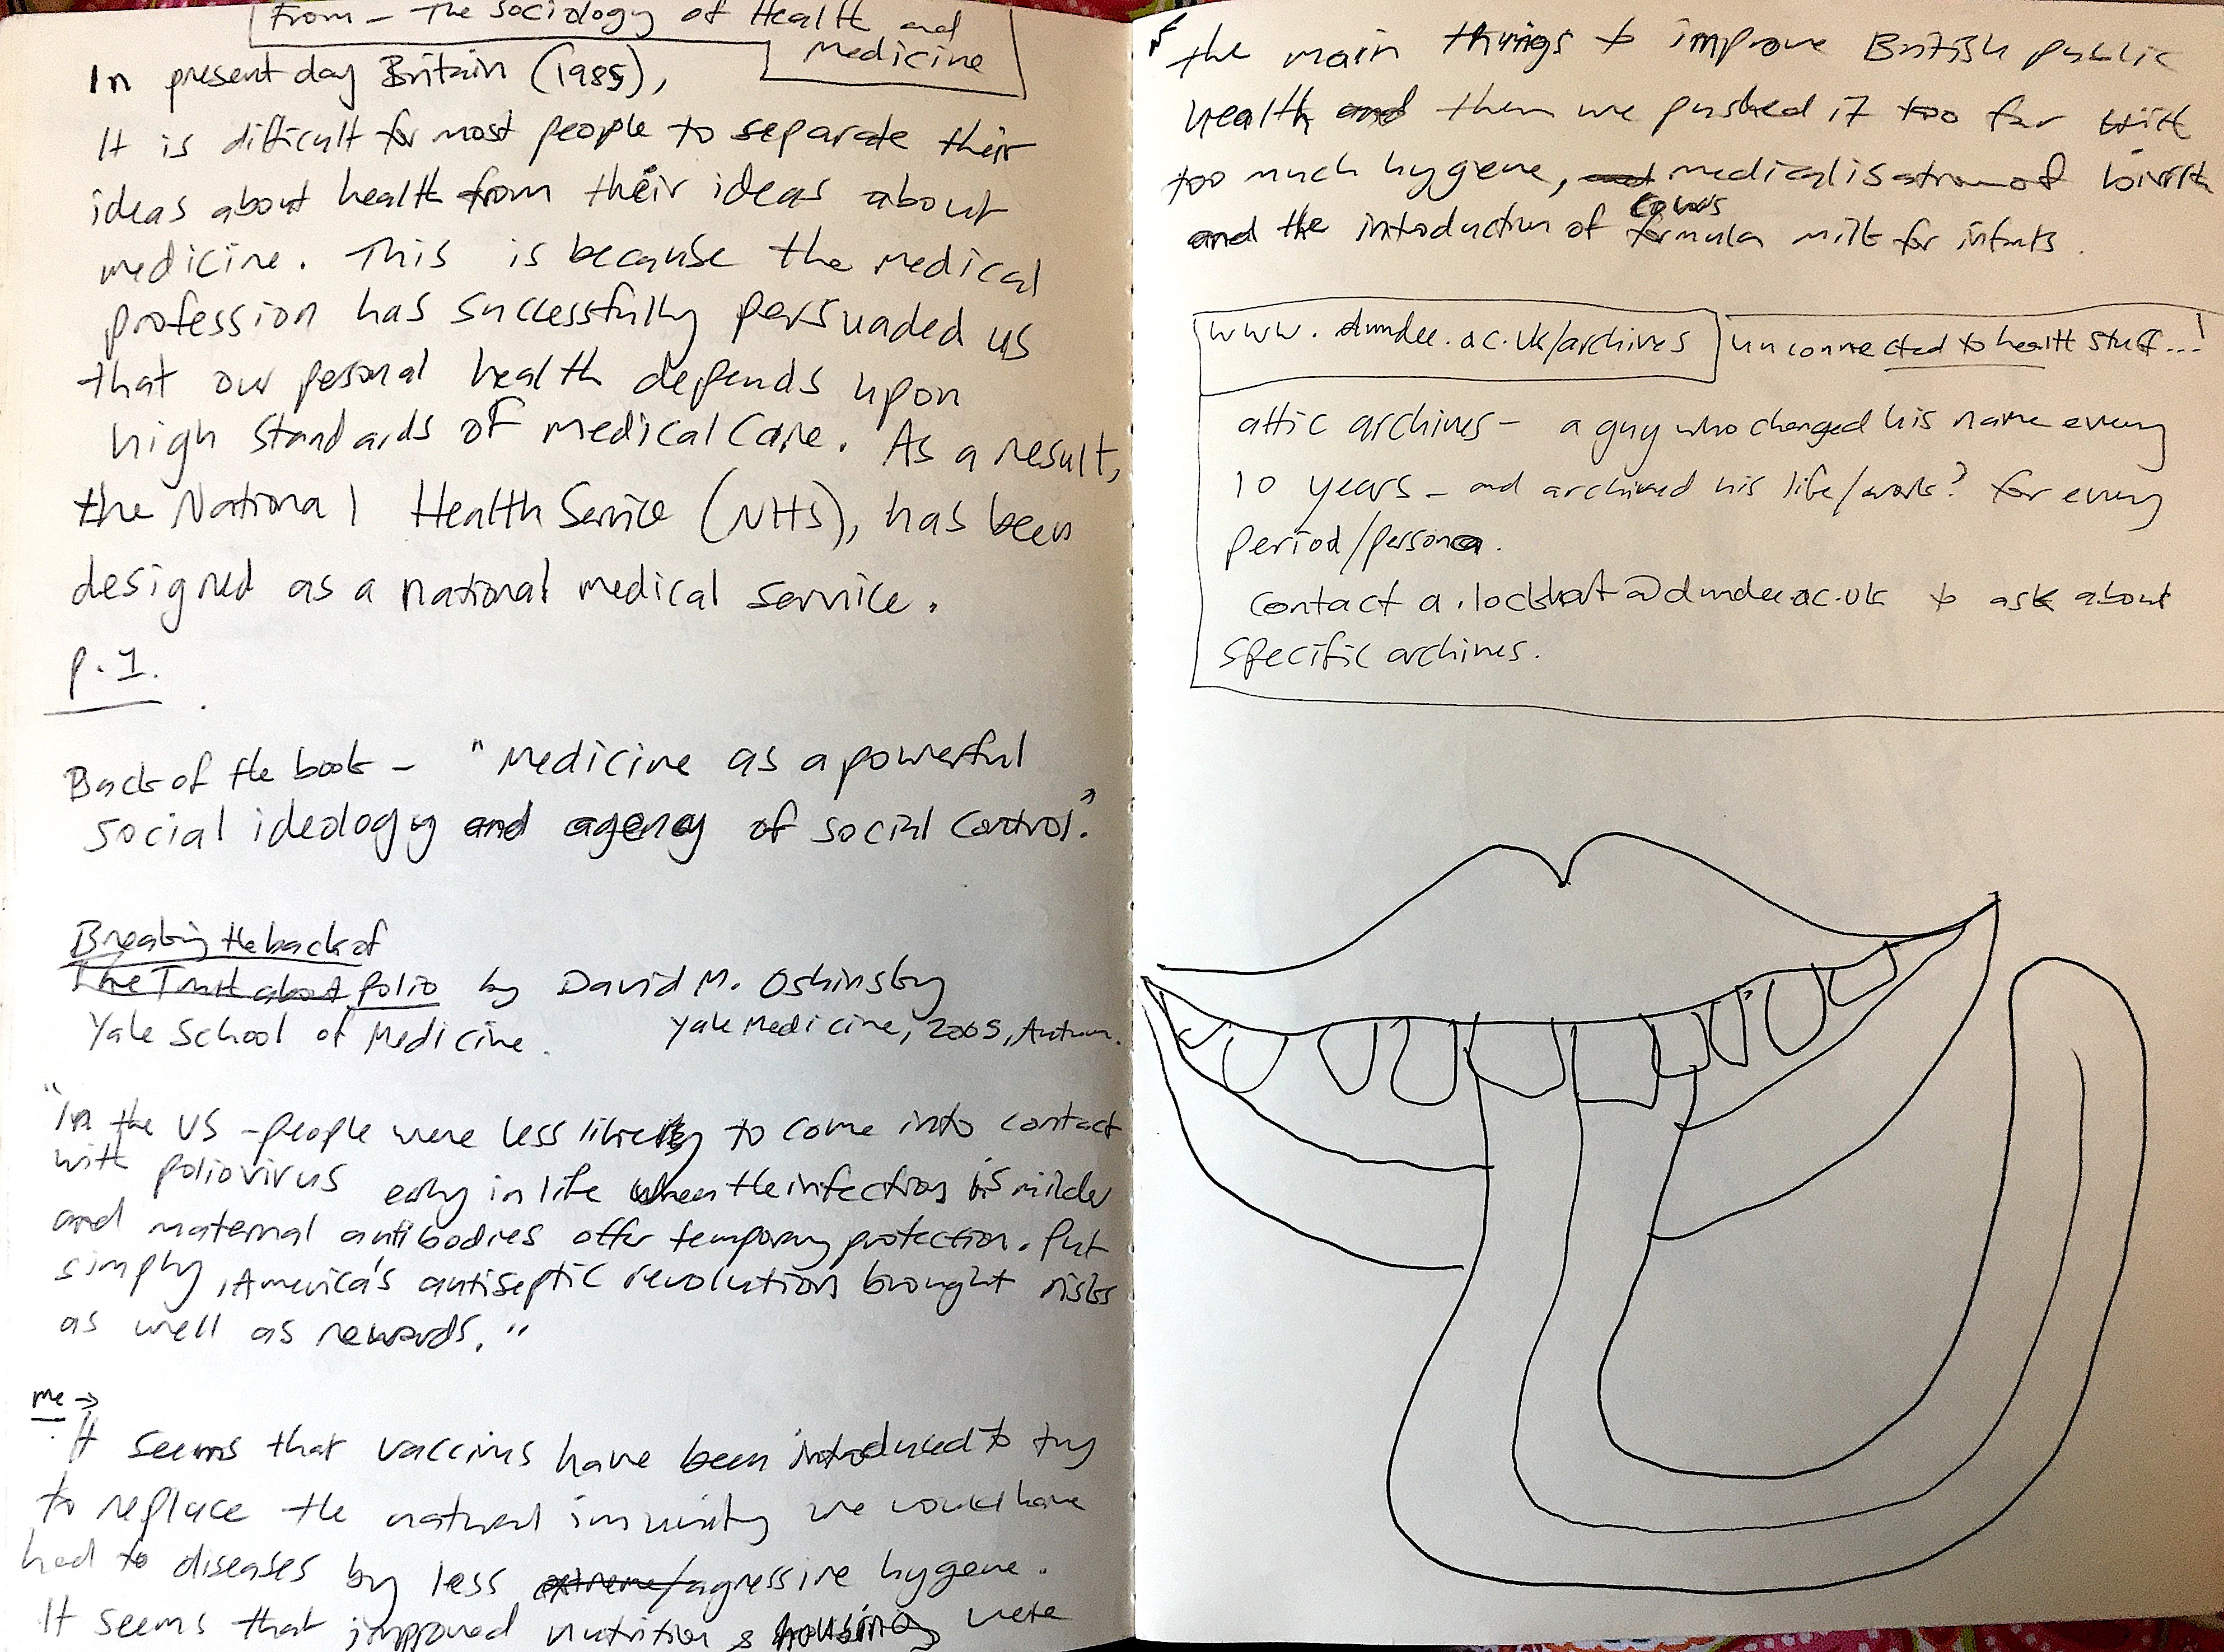 From - The Sociology of Health and
Medicine
In present day Britain (1985),
It is difficult for most people to separate their
ideas about health from their ideas about
medicine. This is because the medical
profession has successfully persuaded us
that our pesonal health depends upon
high standards of medical care. As a result,
the National Health Service (NHS), has been
designed as a national medical service.
p.1.
Back of the book - "Medicine as a powerful
social ideology and agency of social control."
Breaking the back of
The Truth about polio by David M. Oshinsky
Yale School of Medicine. Yale Medicine, 2005, Autumn.
"In the US - people were less likely to come into contact
with poliovirus early in life when the infection is milder
and maternal antibodies offer temporary protection. Put
simply, America's antiseptic revolution brought risks
as well as rewards."
me →
It seems that vaccines have been introduced to try
to replace the natural immunity we would have
had to diseases by less extreme/agressive hygene.
It seems that improved nutrition & housing were
the main things to improve British public
health and then we pushed it too far with
too much hygiene, and medicalisation of birth
cows
and the introduction of formula milk for infants.
www.dundee.ac.uk/archives unconnected to health stuff...!
attic archives - a guy who changed his name every
10 years - and archived his life/work? for every
period/persona.
contact a.lockhart@dundee.ac.uk to ask about
specific archives.